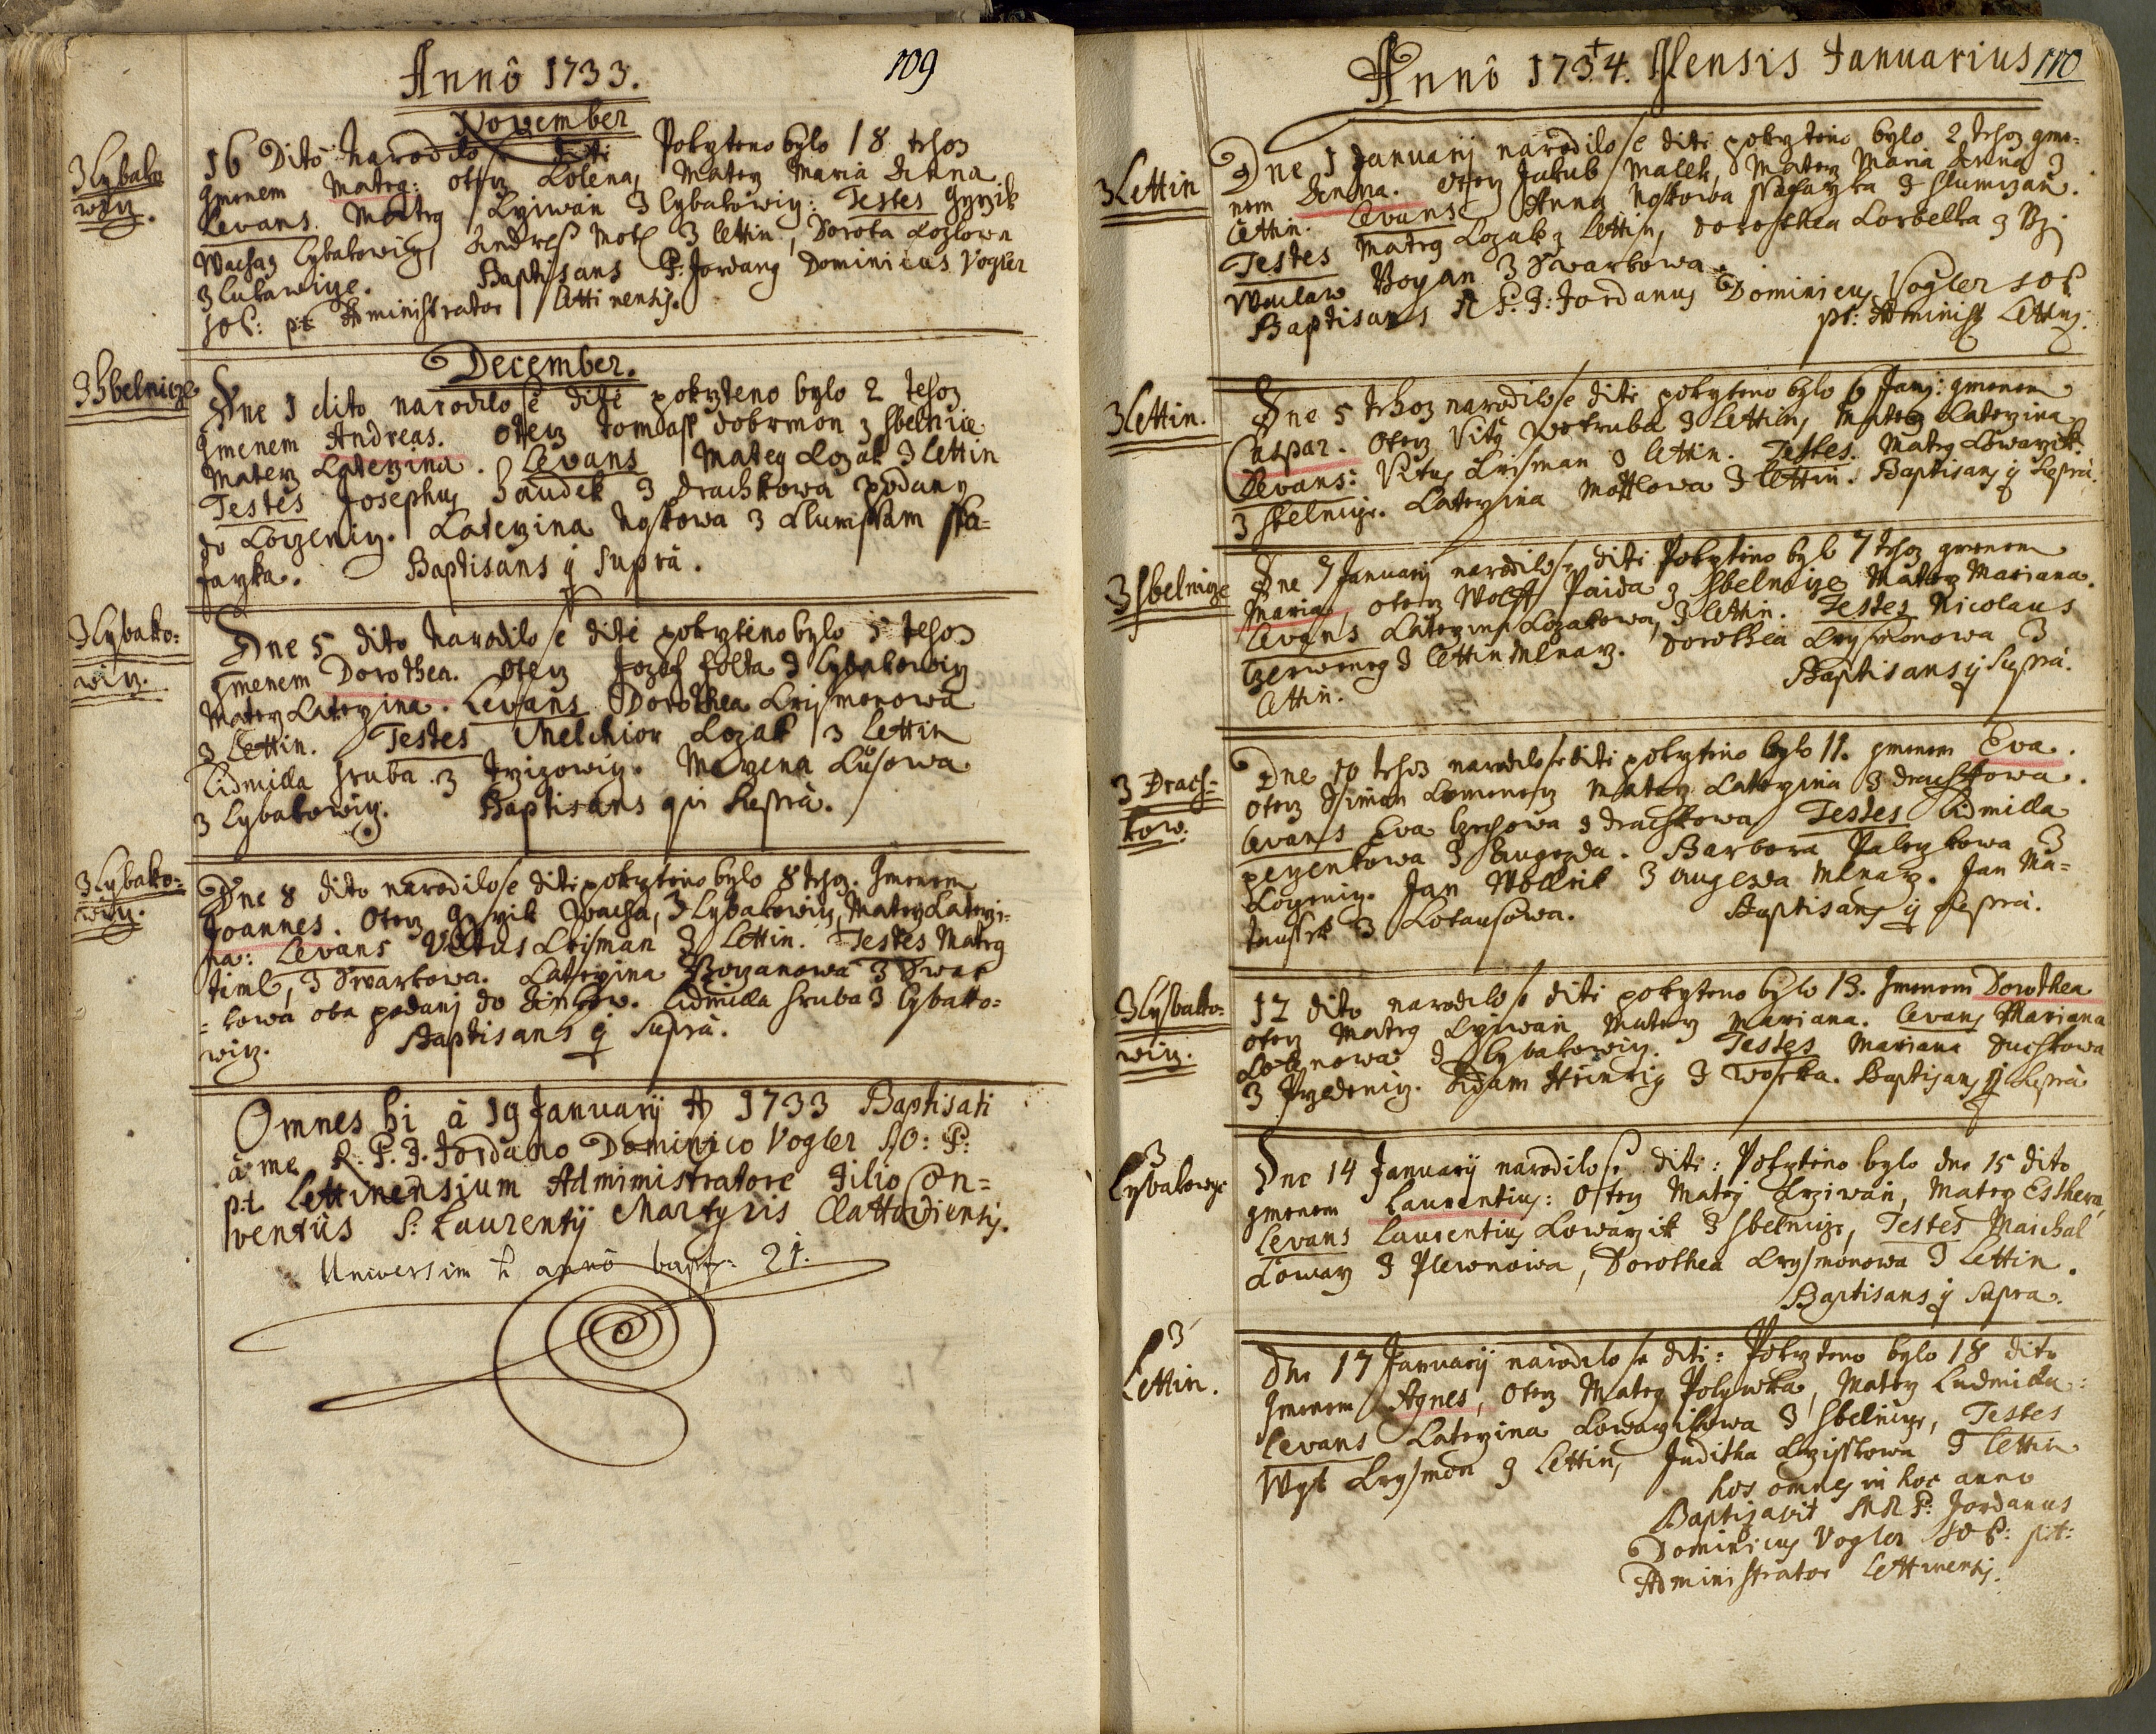 Anno 1733.
109
November
3 Lybako
wiz.
16 Dito narodilo se diti Pokrzteno bylo 18 tehoz
gmenem Matieg: otecz Kolena, Matez Maria Anna
Levans Matieg Krziwan 3 Lybakowiz: Testes Girzik
Wacha z Lybakowiz, Andress Motl 3 Lettin, Dorota Kozlowa
3 Lukawize. Baptisans P: Jordang Dominicus Vogler
SOP: pt Administrator Lettinensis.
December.
3 Sbelnicze
Dne 1 dito narodilo se diti pokrzteno bylo 2 tehoz
Gmenem Andreas. Otecz Tomass Dobrmon z Sbelnice
Matez Katerzina. Levans Mateg Kozak 3 Lettin
Testes Josephus Saudek 3 Drachkowa podany
do Korzeniz. Katerzina Noskowa 3 Chumssam ssa=
farzka. Baptisans q Supra.
3 Lybako:
wiz.
Dne 5 dito narodilo se diti pokrzteno bylo 5 tehoz
gmenem Dorothea. Otecz Jozef Folta 3 Lybakowiz
Matez Katerzina. Levans Dorothea Krismonowa
3 Lettin. Testes Melchior Kozak 3 Lettin
Lidmilla Hruba 3 Girzizowiz. Marzena Kusowa
3 Lybakowiz. Baptisans qui Supra.
3 Lybako:
wiz.
Dne 8 dito narodilo se diti pokrzteno bylo 8 tehoz. Gmenem
Joannes. Otecz Girzik Wacha, 3 Lybakowiz, Matez Katerzi=
na: Levans Vitus Krisman 3 Lettin. Testes Matieg
Timl, 3 Swarkowa. Katerzina Bozanowa 3 Swar
=kowa oba podani do Zinkow. Lidmilla Hruba 3 Lybako=
wiz. Baptisans q Supra.
Omnes hi à 19 Januarij A 1733 Baptisati
à me R. P. F. Jordano Dominico Vogler S:O: P:
p:t. Lettinensium Admimistratore Filio Con=
ventûs S: Laurentij Martyris Clattoviensis.
Universim h anno bapt: 21.
Anno 1734. Mensis Januarius
110
3 Lettin
Dne 1 Januarij narodilo se diti pokrzteno bylo 2 tehoz gme=
nem Anna. Otecz Jakub Malek, Matez Maria Anna 3
Lettin. Levans Anna Noskowa ssafarzka 3 Chumzan.
Testes Matieg Kozak z Lettin, Dorothea Korbelka z Rzi
Waclaw Bozan 3 Swarkowa.
Baptisans A R. P. F: Jordanus Dominicus Vogler SOP
pt: Administ Lettins:
3 Lettin.
Dne 5 tehoz narodilo se diti pokrzteno bylo 6 Janij: gmenem
Caspar. Otecz Vitg Wotruba 3 Lettin, Matez Katerzina
Levans: Vitus Krisman 3 Lettin. Testes. Matieg Kowarzik
3 Sbelnize. Katerzina Mottlowa 3 Lettin. Baptisans q Supra.
3 Sbelnize
Dne 7 Januarij narodilo se diti Pokrzteno bylo 7 tehoz gmenem
Maria, Otecz Wolff Paida z Sbelnize Matez Mariana.
Levans Katerzina Kozakowa, 3 Lettin. Testes Nicolaus
Czerweneg 3 Lettin Mlnarz. Dorothea Krysmonowa 3
Lettin. Baptisans q Supra.
3 Drach=
kow:
Dne 10 tehoz narodilo se diti pokrzteno bylo 11. gmenem Eva.
Otecz Simon Komenecz Matez Katerzina 3 Drachkowa.
Levans Eva Czechowa 3 Drachkowa Testes Lidmilla
pezenkowa 3 Augezda. Barbora Paleczkowa 3
Korzeniz. Jan Wollrik 3 Augezda Mlnarz. Jan Ma=
taussek 3 Kotausowa. Baptisans q Supra.
3 Lybako:
wiz.
12 dito narodilo se diti pokrzteno bylo 13. Gmenem Dorothea
otecz Matieg Krziwan Matez Mariana. Levans Mariana
Kolenowa 3 Lybakowiz. Testes Mariana Duchkowa
3 Przedeniz. Adam Heinrig 3 Woska. Baptisans q Supra
3
Lybakowiz
Dne 14 Januarij narodilo se diti: Pokrzteno bylo dne 15 dito
gmenem Laurentius: Otecz Matej Krziwan, Matez Esthera,
Levans Laurentius Kowarzik 3 Sbelnize, Testes Maichal
Kowarz 3 Plewnowa, Dorothea Krysmonowa 3 Lettin.
Baptisans q Supra.
3
Lettin.
Dne 17 Januarij narodilo se diti: Pokrzteno bylo 18 dito
Gmenem Agnes, Otecz Matieg Polywka, Matez Ludmilla:
Levans Katerzina Kowarzikowa 3 Sbelnize, Testes
Wyt Krysmon 3 Lettin, Juditha Krzisstowa 3 Lettin
hos omnes in hoc anno
Baptizavit A R P: Jordanus
Dominicus Vogler SOP: p:t:
Administrator Lettinensis.